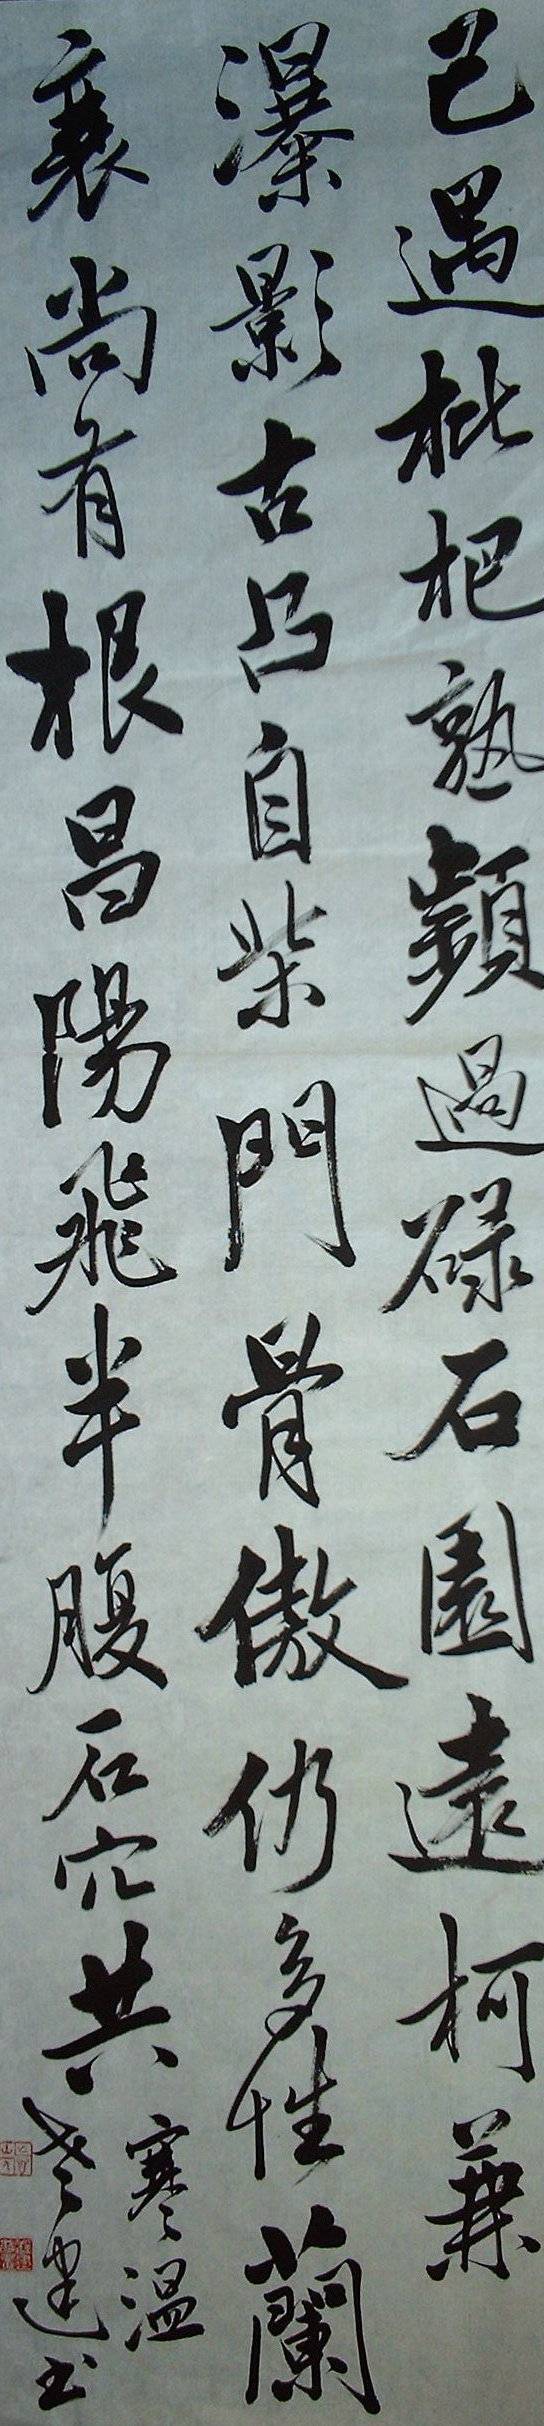 已遇枇杷熟頻過碌石園遠柯兼
瀑影古凸自柴門骨傲仍多性蘭
衰尚有根昌陽飛半腹石穴共
寒温
书